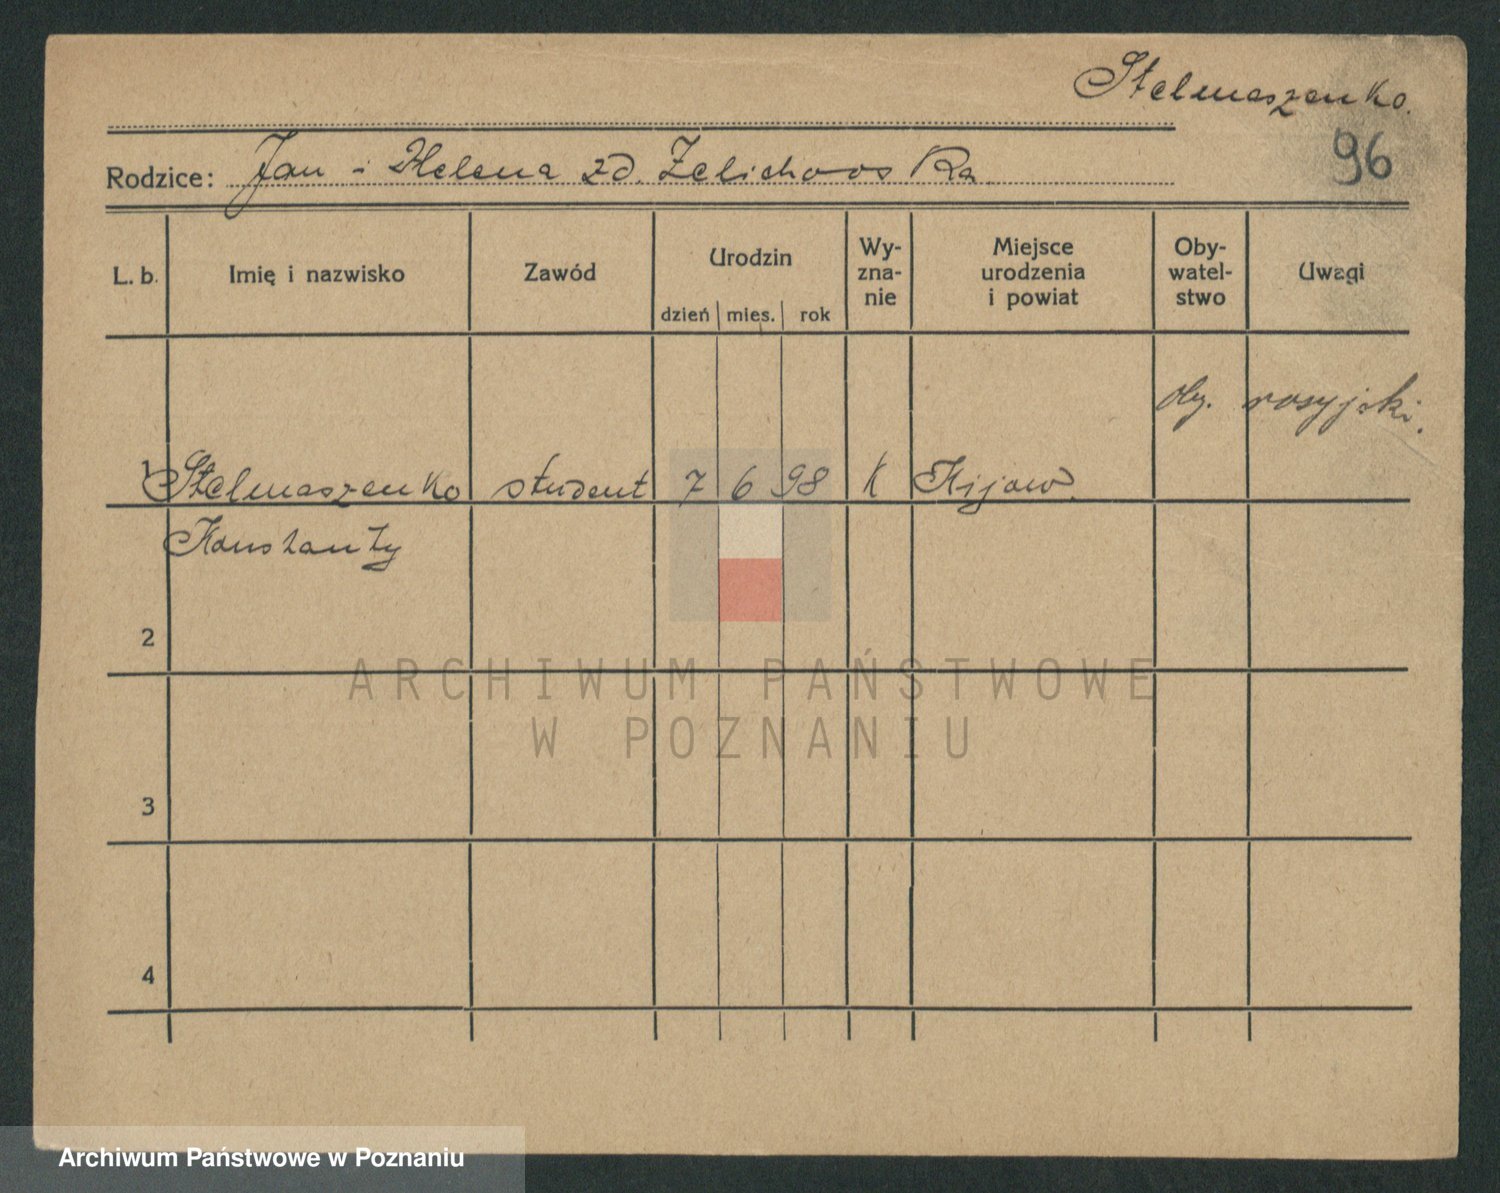 Stelmaszenko.
96
Rodzice: Jan i Helena zd. Zelichowska
L. b. Imię i nazwisko Zawód Urodzin dzień mies. rok Wy-zna-nie Miejsce urodzenia i powiat Oby-watel-stwo Uwagi
oby. rosyjski.
1 Stelmaszenko student 7 6 98 k Kijow.
Konstanty
2
ARCHIWUM PAŃSTWOWE
W POZNANIU
3
4
Archiwum Państwowe w Poznaniu